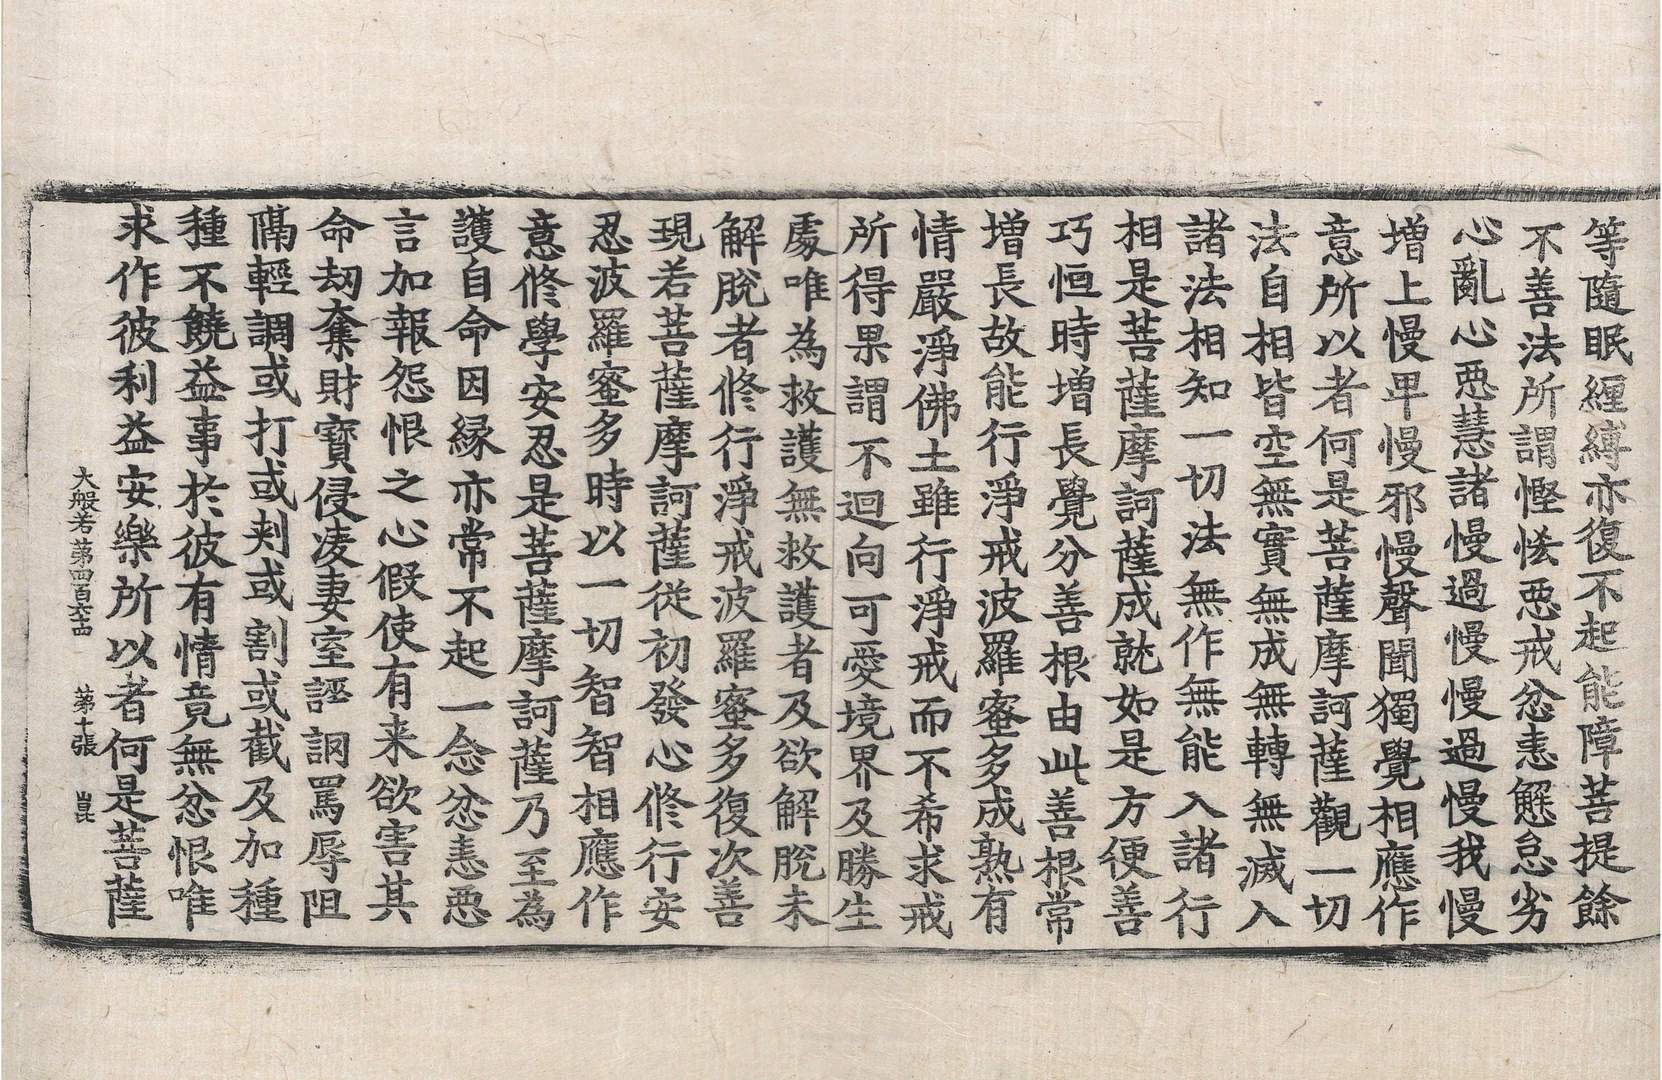 等隨眠纏縛亦復不起能障菩提餘
不善法所謂慳悋惡戒忿恚懈怠劣
心亂心惡慧諸慢過慢慢過慢我慢
增上慢卑慢邪慢聲聞獨覺相應作
意所以者何是菩薩摩訶薩觀一切
法自相皆空無實無成無轉無滅入
諸法相知一切法無作無能入諸行
相是菩薩摩訶薩成就如是方便善
巧恒時增長覺分善根由此善根常
增長故能行淨戒波羅蜜多成熟有
情嚴淨佛土雖行淨戒而不希求戒
所得果謂不迴向可愛境界及勝生
處唯為救護無救護者及欲解脫未
解脫者修行淨戒波羅蜜多復次善
現若菩薩摩訶薩從初發心修行安
忍波羅蜜多時以一切智智相應作
意修學安忍是菩薩摩訶薩乃至為
護自命因緣亦常不起一念忿恚惡
言加報怨恨之心假使有来欲害其
命劫奪財寶侵凌妻室誣詷罵辱阻
隔輕調或打或刾或割或截及加種
種不饒益事於彼有情竟無忿恨唯
求作彼利益安樂所以者何是菩薩
大般若第四百六十四 第十張 崑